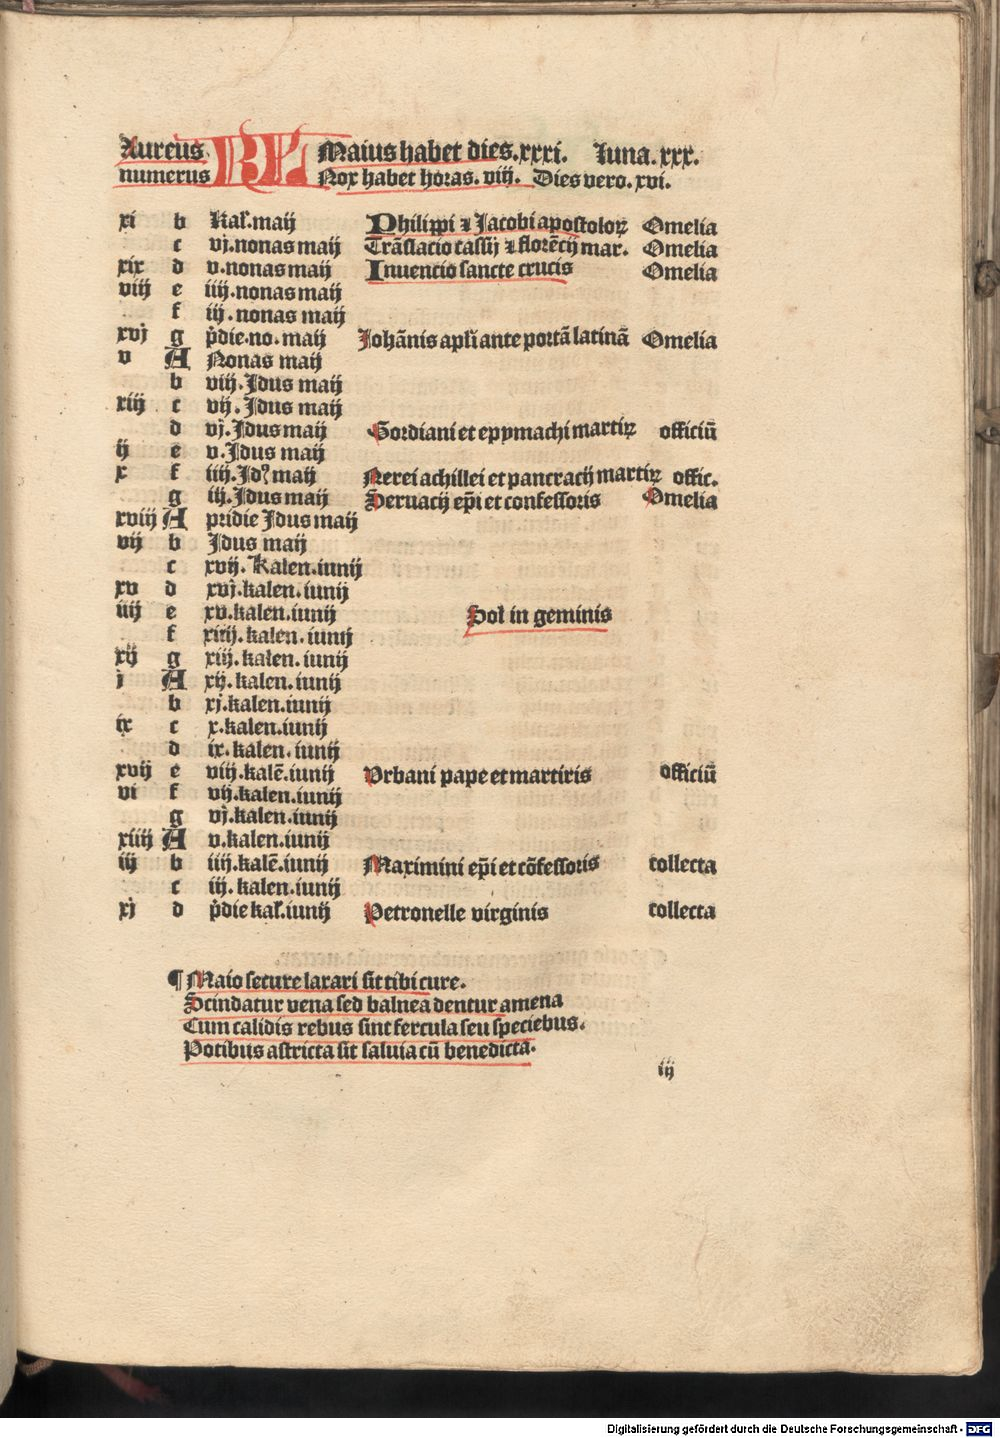 Aureus KL Maius habet dies.xxxi. Luna.xxx.
numerus Nox habet horas.viij. Dies vero.xvi.
xi b Kal̄.maij Philippi ⁊ Jacobi apostoloꝝ Omelia
c vj.nonas maij Trāslacio cassij ⁊ florēcij mar. Omelia
xix d v.nonas maij Inuencio sancte crucis Omelia
viij e iiij.nonas maij
f iij.nonas maij
xvj g p̄die.no.maij Johānis apl̄i ante portā latinā Omelia
v A Nonas maij
b viij.Jdus maij
xiij c vij.Jdus maij
d vj.Jdus maij Gordiani et epymachi martiꝝ officiū
ij e v.Jdus maij
x f iiij.Jdꝰ maij Nerei achillei et pancracij martiꝝ offic.
g iij.Jdus maij Seruacij ep̄i et confessoris Omelia
xviij A pridie Jdus maij
vij b Jdus maij
c xvij.Kalen.iunij
xv d xvj.kalen.iunij
iiij e xv.kalen.iunij Sol in geminis
f xiiij.kalen.iunij
xij g xiij.kalen.iunij
j A xij.kalen.iunij
b xj.kalen.iunij
ix c x.kalen.iunij
d ix.kalen.iunij
xvij e viij.kalē.iunij Vrbani pape et martiris officiū
vi f vij.kalen.iunij
g vj.kalen.iunij
xiiij A v.kalen.iunij
iij b iiij.kalē.iunij Maximini ep̄i et cōfessoris collecta
c iij.kalen.iunij
xj d p̄die kal̄.iunij Petronelle virginis collecta
¶ Maio secure laxari sit tibi cure.
Scindatur vena sed balnea dentur amena
Cum calidis rebus sint fercula seu speciebus.
Potibus astricta sit saluia cū benedicta.
iij
Digitalisierung gefördert durch die Deutsche Forschungsgemeinschaft - DFG